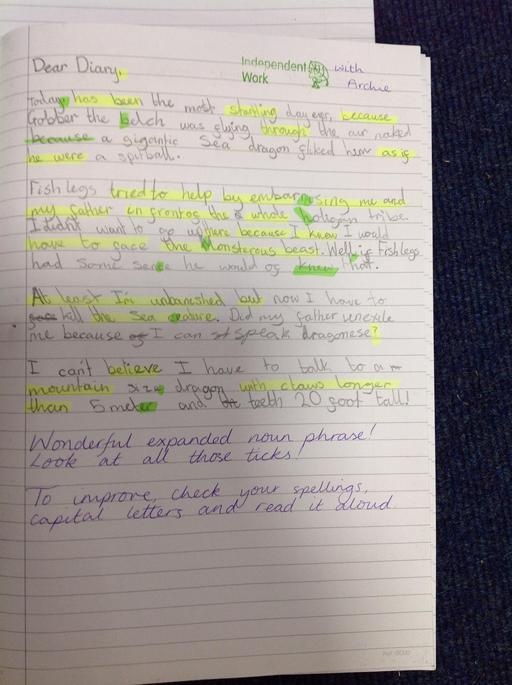 Dear Diary,
Independent Work
with Archie
Today has been the most startling day ever, because
Gobber the belch was flying through the air naked
because a gigantic Sea dragon fliked him as if
he were a spitball.
Fish legs tried to help by embarrassing me and
my father in frontog the whole hooligan tribe.
I didn't want to go up there because I knew I would
have to gace the Monsterous beast. Well if Fishlegs
had some sence he would og knew that.
At least I'm unbaneshed but now I have to
tell the Sea reature. Did my father unexile
me because I can speak dragonese?
I can't believe I have to talk to a
mountain size dragon with claws longer
than 5 meter and teeth 20 goot tall!
Wonderful expanded noun phrase!
Look at all those ticks!
To improve, check your spellings,
capital letters and read it aloud.